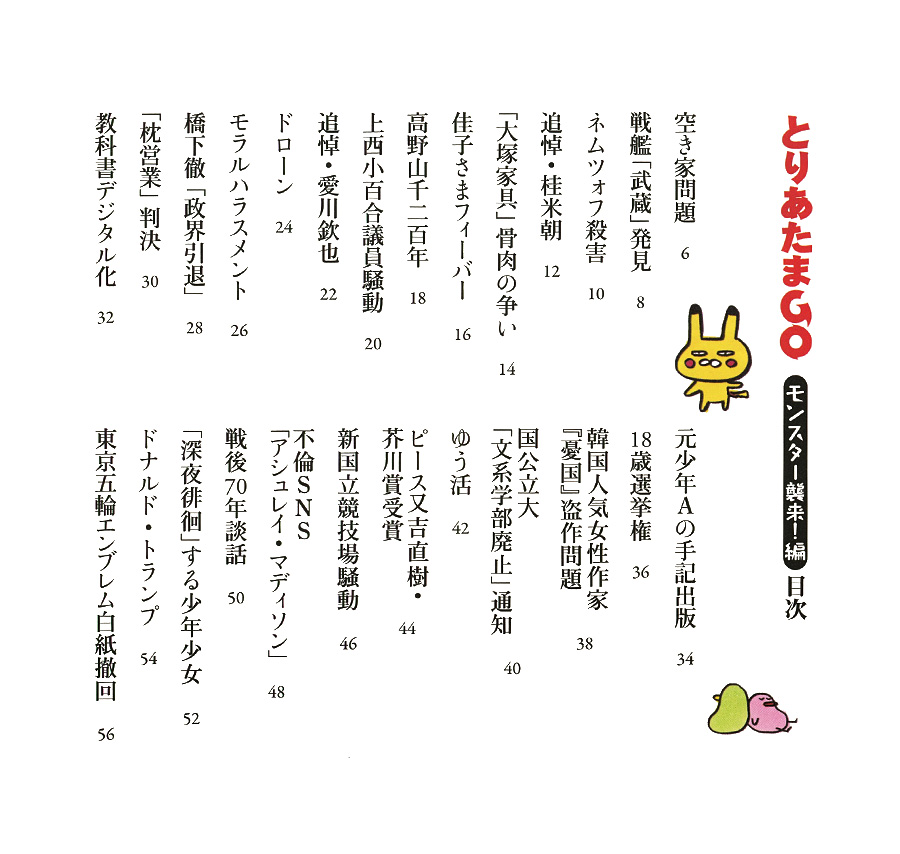 とりあたまGO
モンスター襲来！編
目次
空き家問題 6
戦艦「武蔵」発見 8
ネムツォフ殺害 10
追悼・桂米朝 12
「大塚家具」骨肉の争い 14
佳子さまフィーバー 16
高野山千二百年 18
上西小百合議員騒動 20
追悼・愛川欽也 22
ドローン 24
モラルハラスメント 26
橋下徹「政界引退」 28
「枕営業」判決 30
教科書デジタル化 32
元少年Aの手記出版 34
18歳選挙権 36
韓国人気女性作家
『憂国』盗作問題 38
国公立大
「文系学部廃止」通知 40
ゆう活 42
ピース又吉直樹・
芥川賞受賞 44
新国立競技場騒動 46
不倫SNS
「アシュレイ・マディソン」 48
戦後70年談話 50
「深夜徘徊」する少年少女 52
ドナルド・トランプ 54
東京五輪エンブレム白紙撤回 56